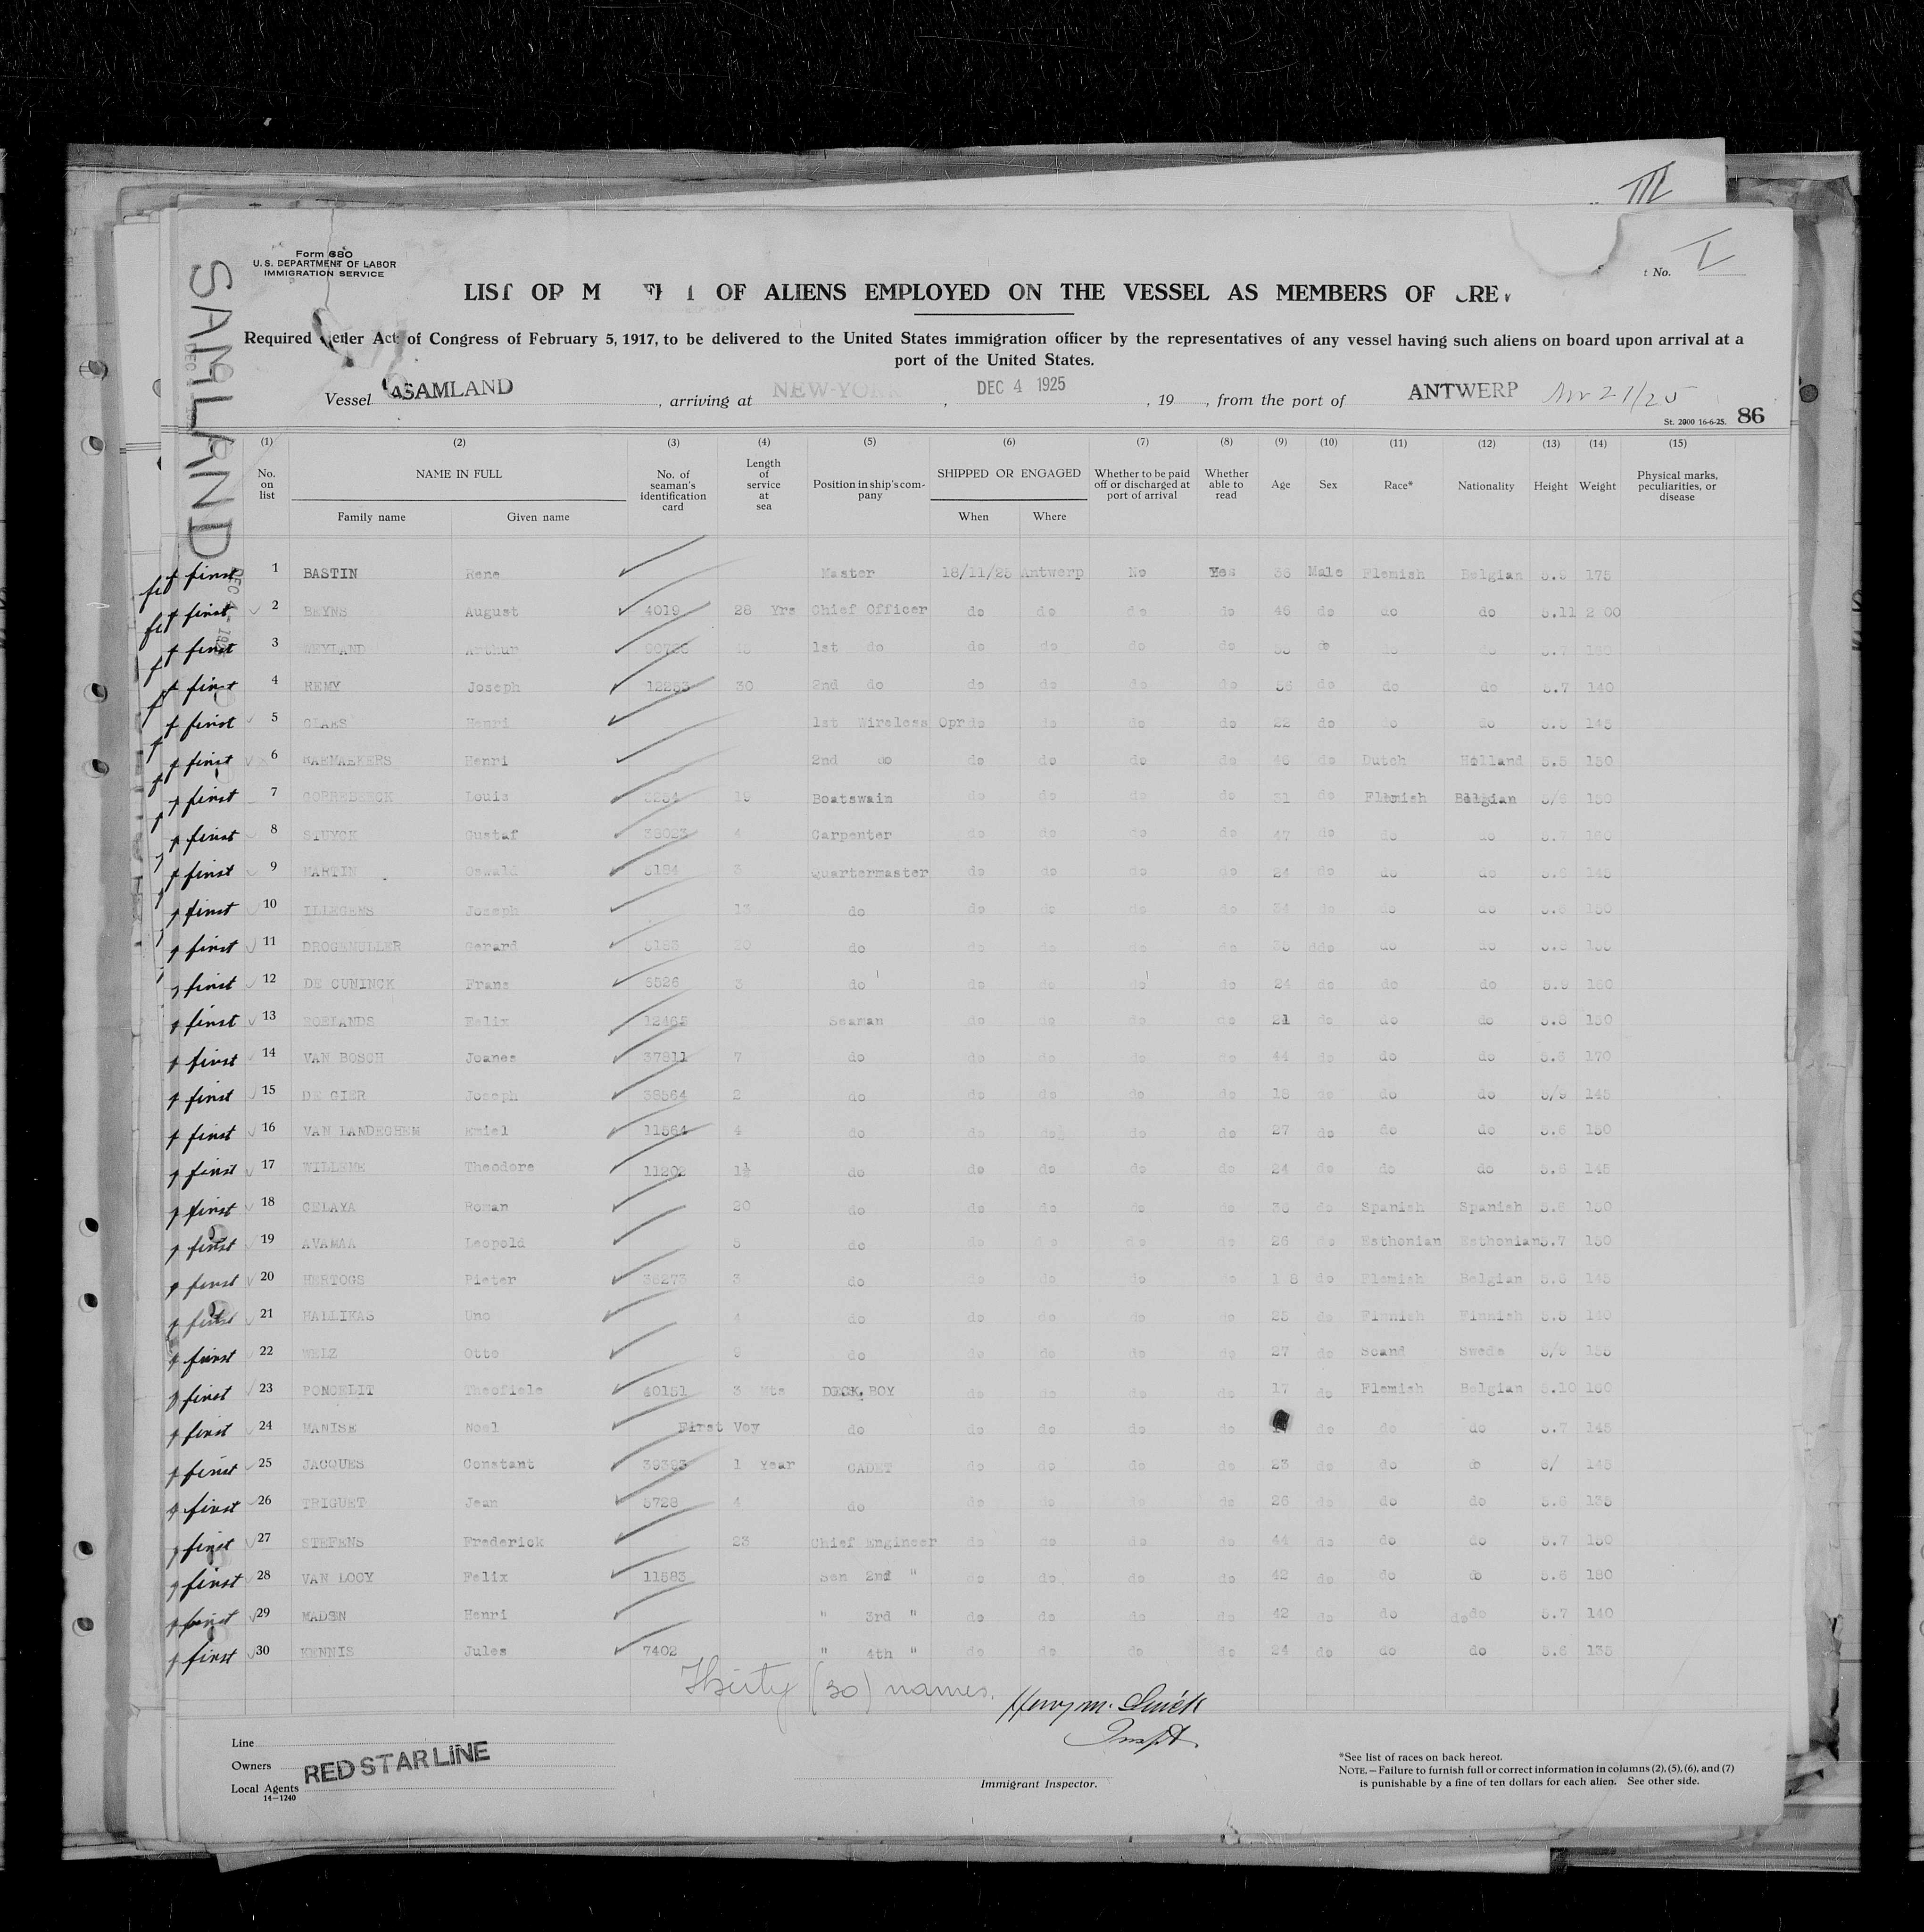 III
Form 680
U. S. DEPARTMENT OF LABOR
IMMIGRATION SERVICE
t No. I
SAMLAND
LIST OR M OF ALIENS EMPLOYED ON THE VESSEL AS MEMBERS OF CREW
Required under Act of Congress of February 5, 1917, to be delivered to the United States immigration officer by the representatives of any vessel having such aliens on board upon arrival at a
port of the United States.
Vessel SAMLAND, arriving at NEW-YORK, DEC 4 1925, 19, from the port of ANTWERP Nov 21/25
St. 2000 16-6-25. 86
(1) (2) (3) (4) (5) (6) (7) (8) (9) (10) (11) (12) (13) (14) (15)
No. on list NAME IN FULL Family name Given name No. of seaman's identification card Length of service at sea Position in ship's company SHIPPED OR ENGAGED When Where Whether to be paid off or discharged at port of arrival Whether able to read Age Sex Race* Nationality Height Weight Physical marks, peculiarities, or disease
first 1 BASTIN Rene Master 18/11/25 Antwerp No Yes 36 Male Flemish Belgian 5.9 175
first 2 BEYNS August 4019 28 Yrs Chief Officer do do do do 46 do do do 5.11 200
first 3 WEYLAND Arthur 1st do do do do do do do do 5.7
first 4 REMY Joseph 12253 30 2nd do do do do do 56 do do do 5.7 140
first 5 CLAES Henri 1st Wireless Opr do do do do 22 do do do 5.5 145
first 6 RAEMAEKERS Henri 2nd do do do do do 46 do Dutch Holland 5.5 150
first 7 GORREBEECK Louis 3254 15 Boatswain do do do do 31 do Flemish Belgian 5/6 150
first 8 STUYCK Gustaf 38023 4 Carpenter do do do do 47 do do do 5.7
first 9 MARTIN Oswald 5184 3 Quartermaster do do do do 24 do do do 5.6 145
first 10 ILLEGEMS Joseph 13 do do do do do 34 do do do 5.6 150
first 11 DROGEMULLER Gerard 5183 20 do do do do do 38 ddo do do 5.8
first 12 DE CUNINCK Frans 5526 3 do do do do do 24 do do do 5.9 160
first 13 ROELANDS Felix 12465 Seaman do do do do 21 do do do 5.8 150
first 14 VAN BOSCH Joanes 37811 7 do do do do do 44 do do do 5.6 170
first 15 DE GIER Joseph 38564 2 do do do do do 18 do do do 5/9 145
first 16 VAN LANDEGHEM Emiel 11564 4 do do do do do 27 do do do 5.6 150
first 17 WILLEME Theodore 11202 1½ do do do do do 24 do do do 5.6 145
first 18 CELAYA Roman 20 do do do do do 36 do Spanish Spanish 5.6 150
first 19 AVAMAA Leopold 5 do do do do do 26 do Esthonian Esthonian 5.7 150
first 20 HERTOGS Pieter 38273 3 do do do do do 18 do Flemish Belgian 5.6 145
first 21 HALLIKAS Uno 4 do do do do do 25 do Finnish Finnish 5.5 140
first 22 WELZ Otto 9 do do do do do 27 do Scand Swede 5/9 155
first 23 PONCELIT Theofiele 40151 3 Mts DECK BOY do do do do 17 do Flemish Belgian 5.10 150
first 24 MANISE Noel First Voy do do do do do do do do 5.7 145
first 25 JACQUES Constant 39393 1 Year CADET do do do do 23 do do do 6/ 145
first 26 TRIGUET Jean 5728 4 do do do do do 26 do do do 5.6 135
first 27 STEFENS Frederick 23 Chief Engineer do do do do 44 do do do 5.7 150
first 28 VAN LOOY Felix 11583 Sen 2nd " do do do do 42 do do do 5.6 180
first 29 MADSN Henri " 3rd " do do do do 42 do do do do 5.7 140
first 30 KENNIS Jules 7402 " 4th " do do do do 24 do do do 5.6 135
Thirty (30) names.
Inspt.
Line
Owners RED STAR LINE
Local Agents
14—1240
Immigrant Inspector.
*See list of races on back hereof.
NOTE.—Failure to furnish full or correct information in columns (2), (5), (6), and (7)
is punishable by a fine of ten dollars for each alien. See other side.